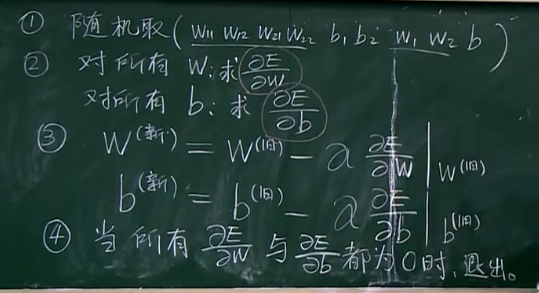 ① 随机取(w₁₁ w₁₂ w₂₁ w₂₂ b₁ b₂ w₁ w₂ b)
② 对所有 w: 求 ∂E/∂w
对所有 b: 求 ∂E/∂b
③ w^(新) = w^(旧) − α ∂E/∂w | w^(旧)
b^(新) = b^(旧) − α ∂E/∂b | b^(旧)
④ 当所有 ∂E/∂w 与 ∂E/∂b 都为0时,退出。